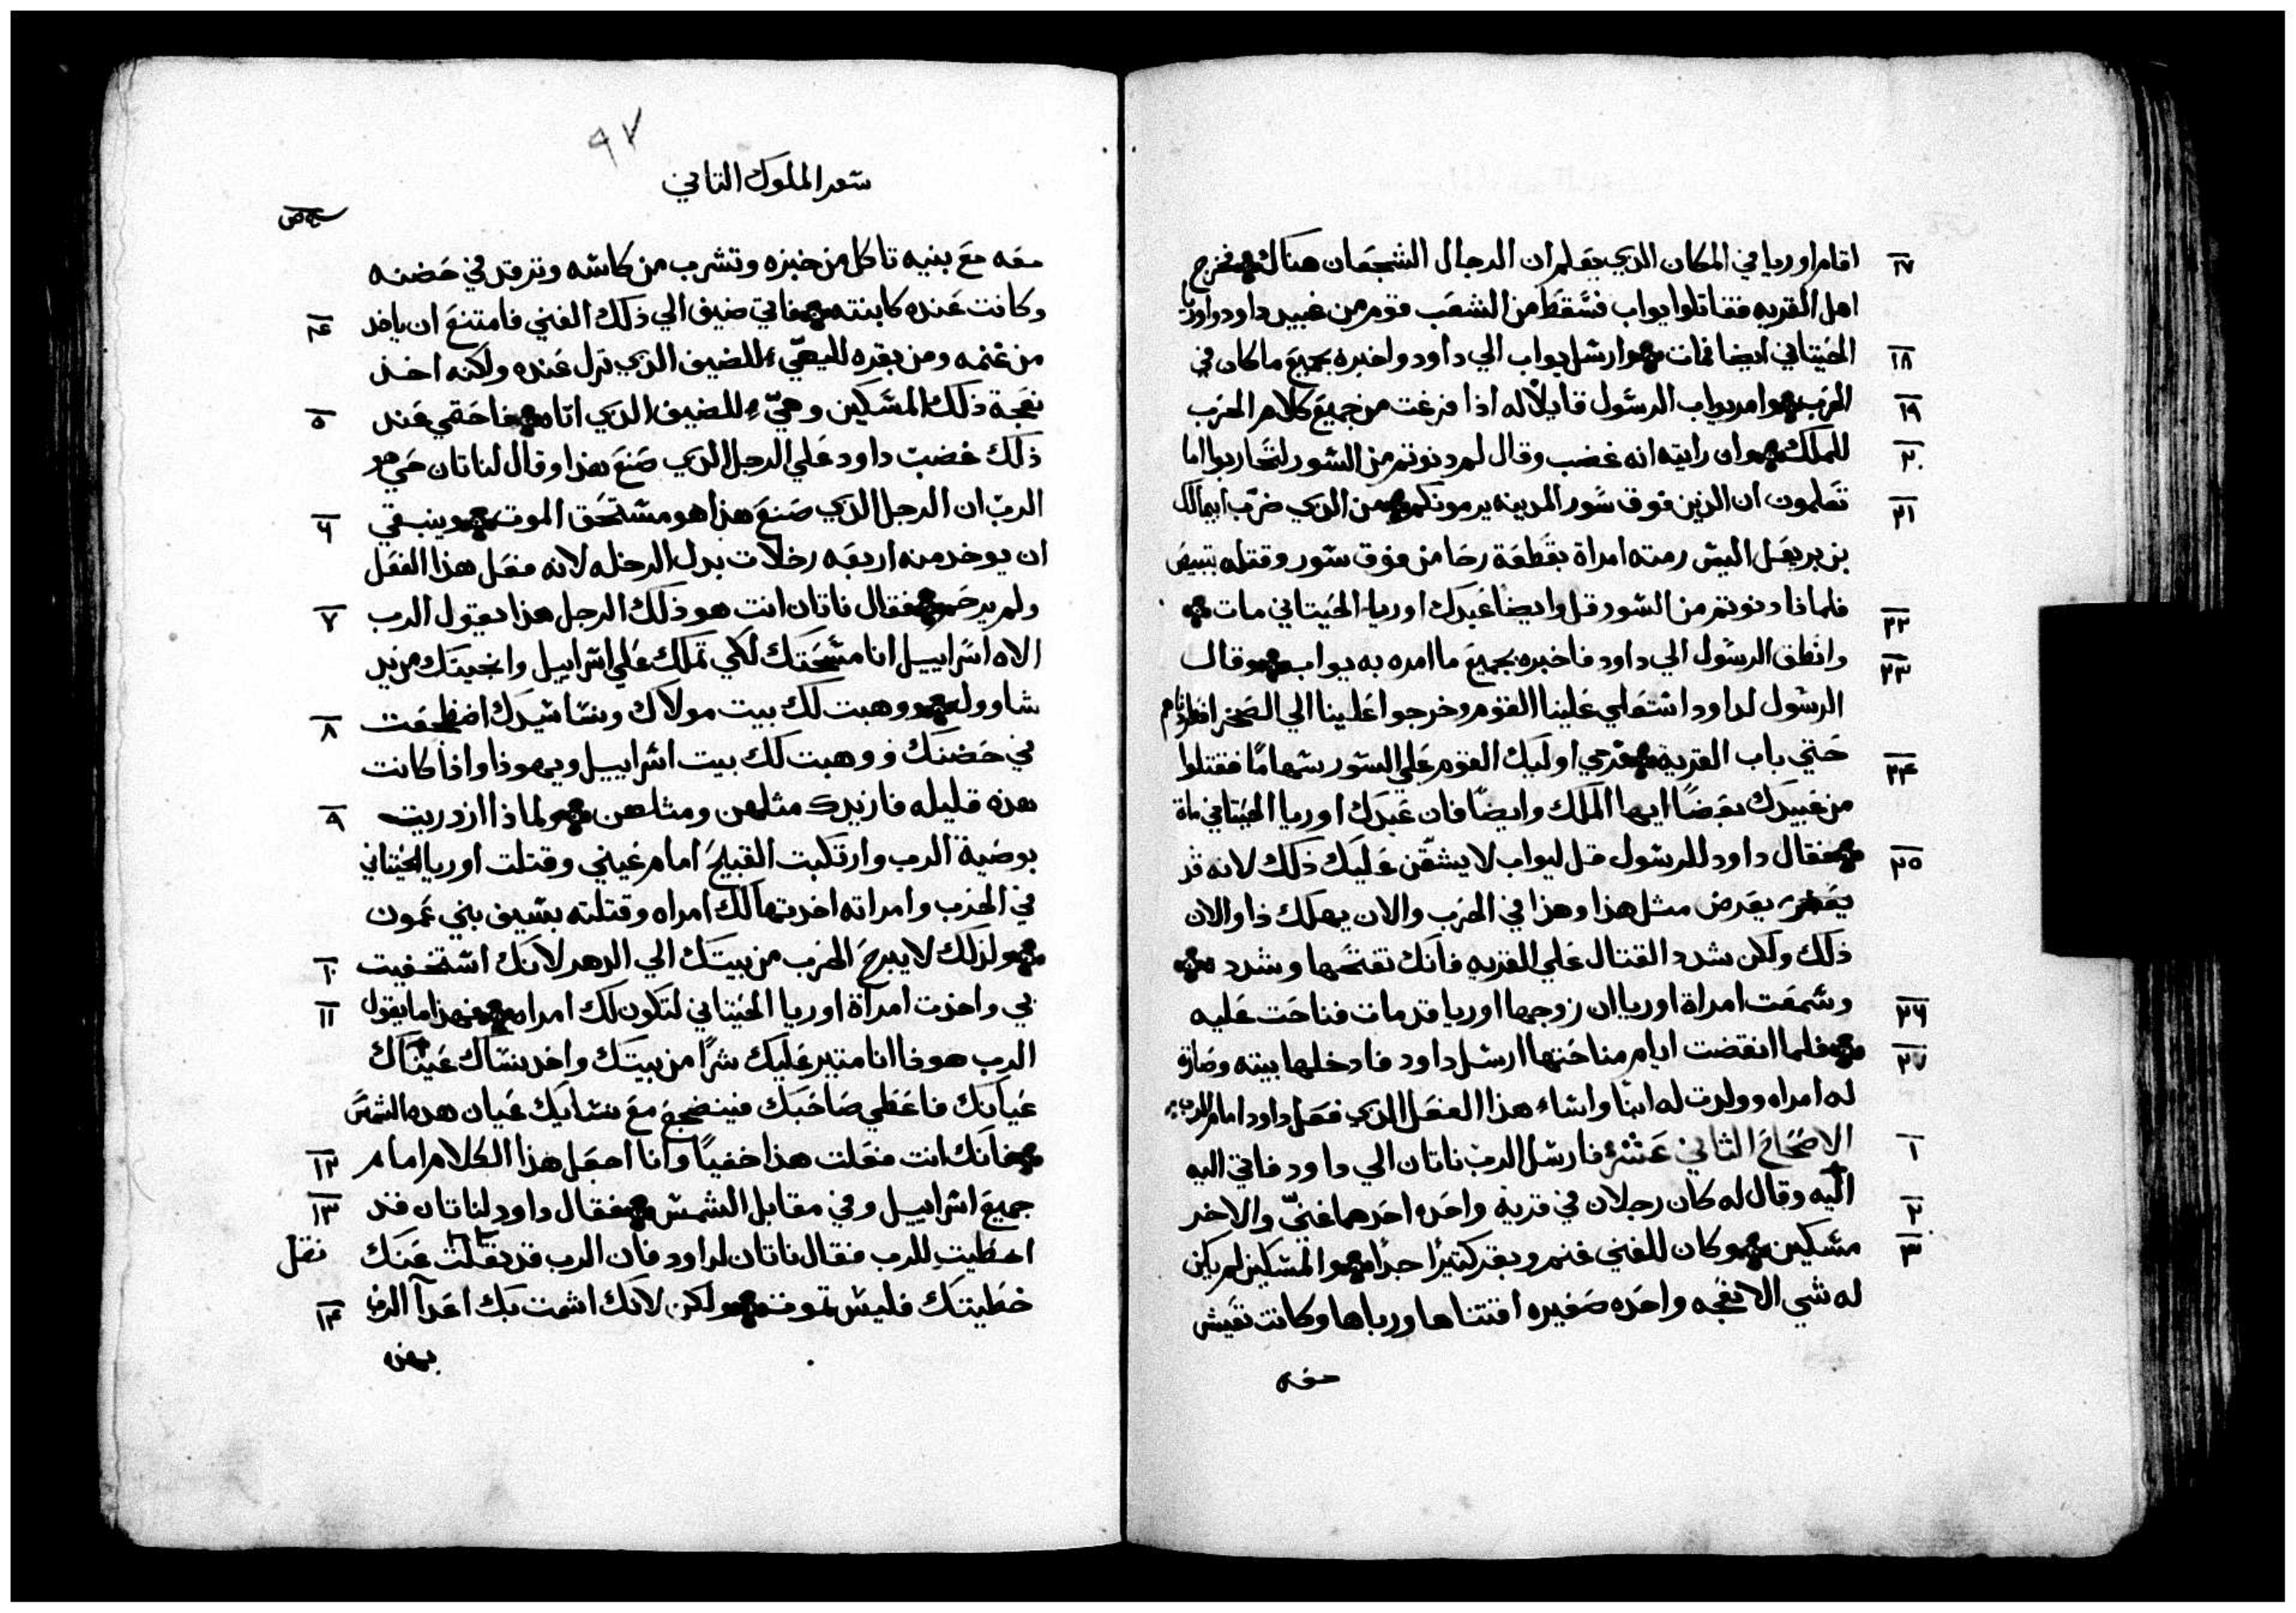 ١٧ اقام اوريا في المكان الدي يعلم ان الرجال الشجعان هناك فخرج
اهل القريه فقاتلوا يواب فسقط من الشعب قوم من عبيد داود واوريا
١٨ الحيتاني ايضا فمات وارسل يواب الي داود واخبره بجميع ما كان في
١٩ الحرب وامر يواب الرسول قايلا له اذا فرغت من جميع كلام الحرب
٢٠ للملك وان رايته انه غضب وقال لم دنوتم من السور لتحاربوا اما
٢١ تعلمون ان الذين فوق سور المدينه يرمونكم من الدي ضرب ابيمالك
بن يربعل اليس رمته امراة بقطعة رحا من فوق سور وقتله بتبيص
٢٢ فلماذا دنوتم من السور قل وايضا عبدك اوريا الحيتاني مات
٢٣ وانطق الرسول الي داود فاخبره بجميع ما امره به يواب وقال
الرسول لداود استعلي علينا القوم وخرجوا علينا الي الصحرا فطردناهم
٢٤ حتي باب القريه فرمي اوليك القوم علي السور سهامًا فقتلوا
من عبيدك بعضًا ايها الملك وايضًا فان عبدك اوريا الحيتاني مات
٢٥ فقال داود للرسول قل ليواب لا يشقن عليك ذلك لانه قد
يعرض مثل هذا وهذا في الحرب والان يهلك ذا والان
ذلك ولكن شدد القتال علي القريه فانك تفتحها وشدد
٢٦ وسمعت امراة اوريا ان زوجها اوريا قد مات فناحت عليه
٢٧ فلما انقضت ايام مناحتها ارسل داود فادخلها بيته وصارت
له امراه وولدت له ابنا واساء هذا الفعل الدي فعل داود امام الرب
١ الاصحاح الثاني عشر فارسل الرب ناتان الي داود فاتي اليه
٢ اليه وقال له كان رجلان في قريه واحده احدهما غني والاخر
٣ مسكين وكان للغني غنم وبقر كتيرًا جدًا والمسكين لم يكن
له شي الا نعجه واحده صغيره اقتناها ورباها وكانت تعيش
معه
٩٧
سفر الملوك التاني
معه مع بنيه تاكل من خبزه وتشرب من كاسه وترقد في حضنه
وكانت عنده كابنته فاتي ضيف الي ذلك الغني فامتنع ان ياخد ٤
من غنمه ومن بقره لليهيّي للضيف الدي نزل عنده ولكنه اخذ
نعجة ذلك المسكين وهيّ للضيف الدي اتاه فاحتمي عند ٥
ذلك غضب داود علي الرجل الدي صنع هذا وقال لناتان حي هو
الرب ان الرجل الدي صنع هذا هو مستحق الموت وينبغي ٦
ان يوخد منه اربعه رخلات بدل الرخله لانه فعل هذا الفعل
ولم يرحم فقال ناتان انت هو ذلك الرجل هذا يقول الرب ٧
الاه اسراييل انا مسحتك لكي تملك علي اسراييل وانجيتك من يد
شاوول ووهبت لك بيت مولاك ونسا سيدك اضطجعت ٨
في حضنك ووهبت لك بيت اسراييل ويهوذا واذا كانت
هذه قليله فازيدك مثلهن ومثلهن ولماذا ازدريت ٩
بوصية الرب وارتكبت القبيح امام عيني وقتلت اوريا الحيتاني
في الحرب وامراته اخدتها لك امراه وقتلته بسيف بني عمون
ولذلك لا يبرح الحرب من بيتك الي الدهر لانك استخفيت ١٠
بي واخذت امراة اوريا الحيتاني لتكون لك امراه فهذا ما يقول ١١
الرب هوذا انا متير عليك شرًا من بيتك واخد نساك
عيانك فاعطي صاحبك فينضجع مع نسايك عيان هذه الشمس
فانك انت فعلت هذا خفيًا وانا اجعل هذا الكلام امام ١٢
جميع اسراييل وفي مقابل الشمس فقال داود لناتان قد ١٣
اخطيت للرب فقال ناتان لداود فان الرب قد نقلت عنك نقل
خطيتك فليس تموت ولكن لانك اشمت بك اعدا الرب ١٤
بهذه